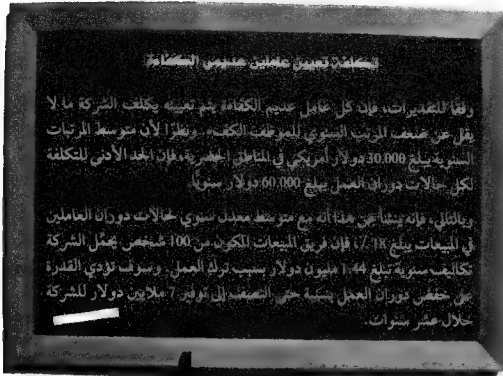 تكلفة تعيين عاملين عديمي الكفاءة
وفقًا للتقديرات، فإن كل عامل عديم الكفاءة يتم تعيينه يكلف الشركة ما لا
يقل عن ضعف المرتب السنوي للموظف الكفء. ونظرًا لأن متوسط المرتبات
السنوية يبلغ 30.000 دولار أمريكي في المناطق الحضرية، فإن الحد الأدنى للتكلفة
لكل حالات دوران العمل يبلغ 60.000 دولار سنويًا.
وبالتالي، فإنه ينشأ عن هذا أنه مع متوسط معدل سنوي لحالات دوران العاملين
في المبيعات يبلغ 18٪، فإن فريق المبيعات المكون من 100 شخص يحمِّل الشركة
تكاليف سنوية تبلغ 1.44 مليون دولار بسبب ترك العمل. وسوف تؤدي القدرة
على خفض دوران العمل بنسبة حتى النصف إلى توفير 7 ملايين دولار للشركة
خلال عشر سنوات.